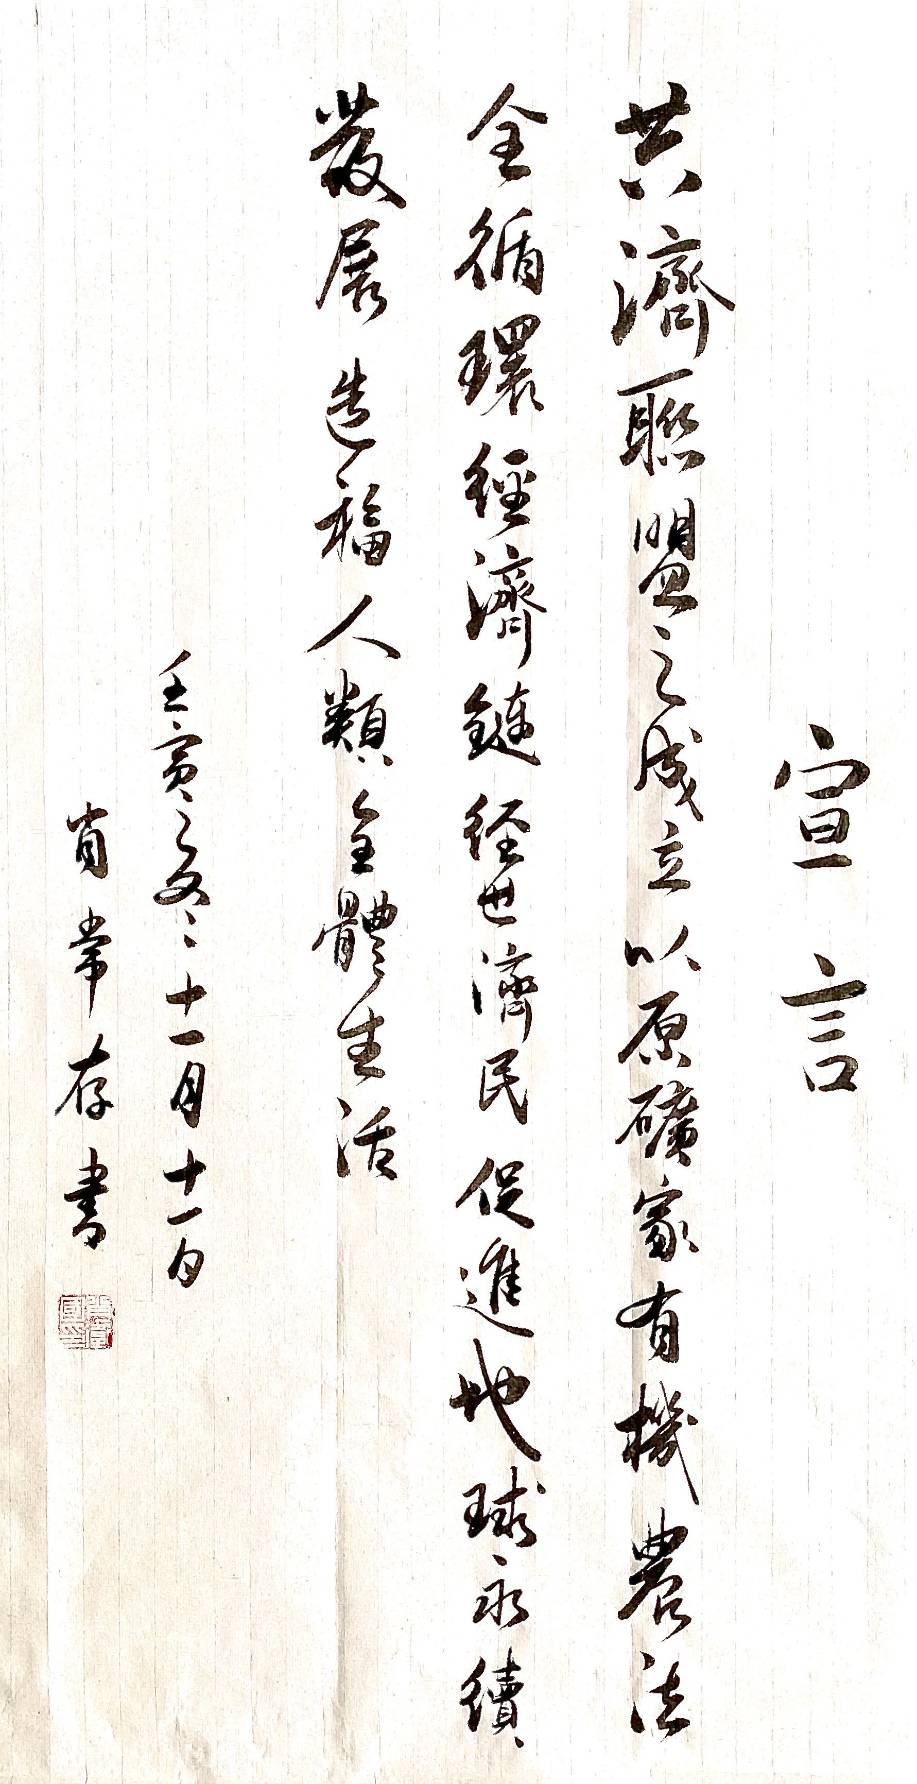 宣言
共濟聯盟之成立以原礦家有機農法
全循環經濟鏈经世濟民促進地球永續
發展造福人類全體生活
壬寅之冬十一月十一日
肖常存書